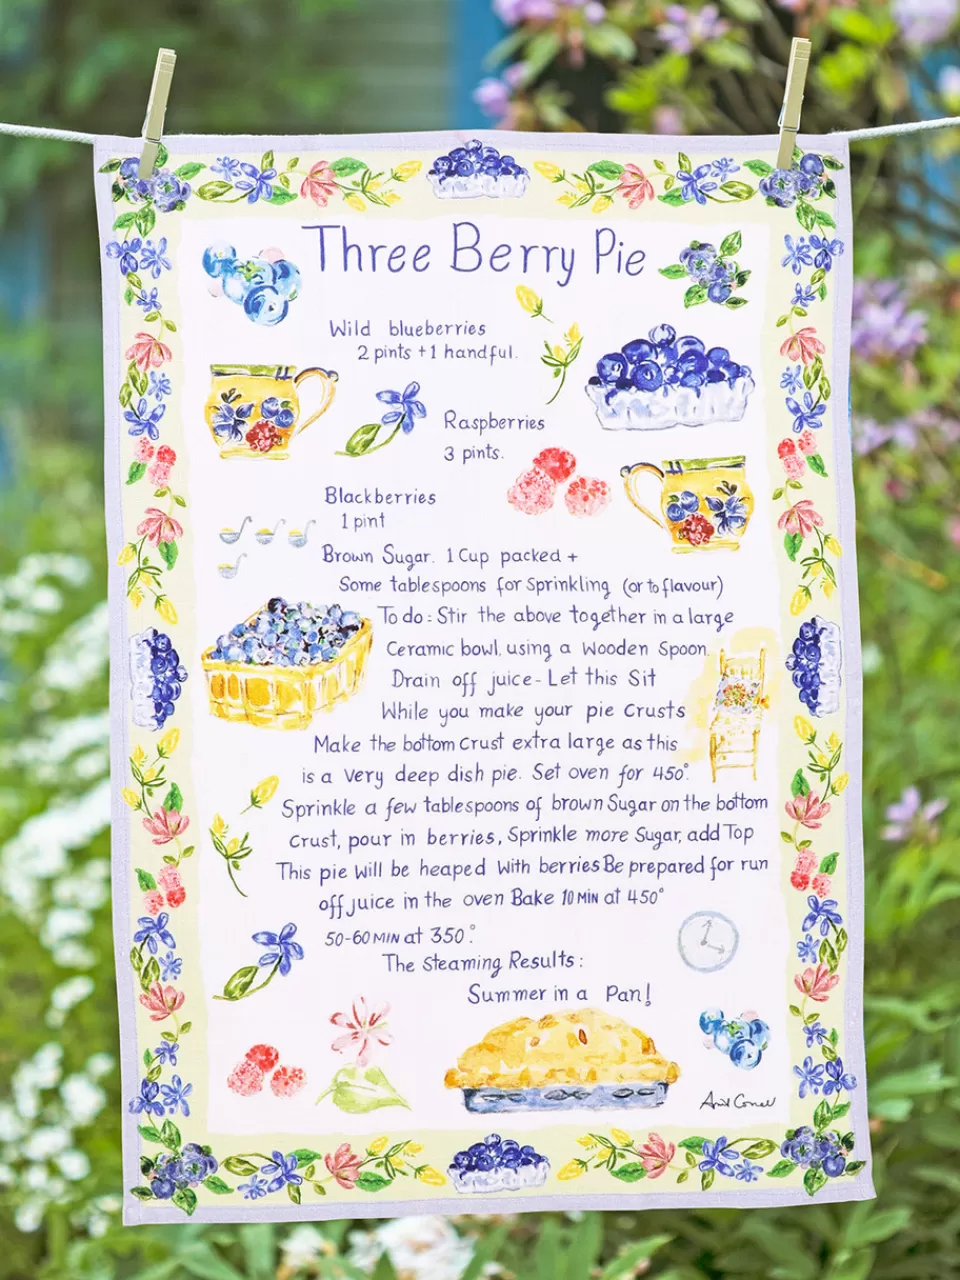 Three Berry Pie
Wild blueberries
2 pints +1 handful.
Raspberries
3 pints.
Blackberries
1 pint
Brown Sugar. 1 Cup packed +
Some tablespoons for Sprinkling (or to flavour)
To do: Stir the above together in a large
Ceramic bowl, using a Wooden Spoon
Drain off juice - Let this Sit
While you make your pie Crusts
Make the bottom Crust extra large as this
is a very deep dish pie. Set oven for 450°.
Sprinkle a few tablespoons of brown Sugar on the bottom
Crust, pour in berries, Sprinkle more Sugar, add Top
This pie will be heaped With berries Be prepared for run
off juice in the oven Bake 10 MIN at 450°
50-60 MIN at 350°.
The Steaming Results:
Summer in a Pan!